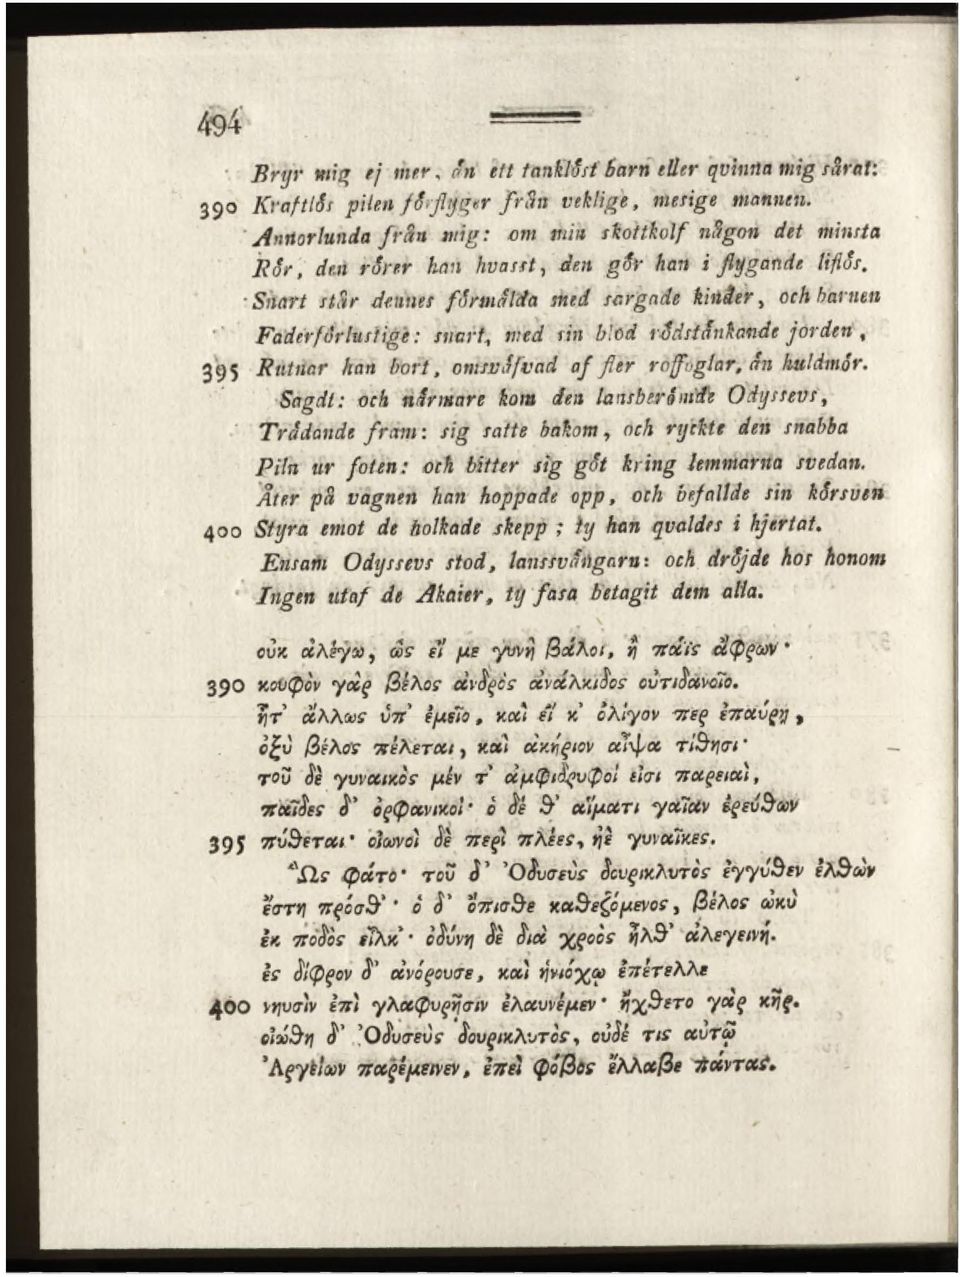 494
Bryr mig ej mer, än ett tanklöst barn eller qvinna mig sårat:
390 Kraftlös pilen förflyger från veklige, mesige mannen.
Annorlunda från mig: om min skottkolf någon det minsta
Rör, den rörer han hvasst, den gör han i flygande liflös.
Snart står dennes förmälda med sargade kinder, och barnen
Faderförlustige: snart, med sin blod rödstänkande jorden,
395 Rutnar han bort, omsväfvad af fler roffoglar, än huldmör.
Sagdt: och närmare kom den lansberömde Odyssevs,
Trädande fram: sig satte bakom, och ryckte den snabba
Piln ur foten: och bitter sig göt kring lemmarna svedan.
Åter på vagnen han hoppade opp, och befallde sin körsven
400 Styra emot de holkade skepp; ty han qvaldes i hjertat.
Ensam Odyssevs stod, lanssvängarn: och dröjde hos honom
Ingen utaf de Akaier, ty fasa betagit dem alla.
οὐκ ἀλέγω, ὡς εἴ με γυνὴ βάλοι, ἢ πάϊς ἄφρων·
390 κοῦφὸν γὰρ βέλος ἀνδρὸς ἀνάλκιδος οὐτιδανοῖο.
ἦτ' ἄλλως ὑπ' ἐμεῖο, καὶ εἴ κ' ὀλίγον περ ἐπαύρῃ,
ὀξὺ βέλος πέλεται, καὶ ἀκήριον αἶψα τίθησι·
τοῦ δὲ γυναικὸς μέν τ' ἀμφιδρυφοί εἰσι παρειαὶ,
παῖδες δ' ὀρφανικοί· ὁ δέ θ' αἵματι γαῖαν ἐρεύθων
395 πύθεται· οἰωνοὶ δὲ περὶ πλέες, ἠὲ γυναῖκες.
Ὣς φάτο· τοῦ δ' Ὀδυσεὺς δουρικλυτὸς ἐγγύθεν ἐλθὼν
ἔστη πρόσθ'· ὁ δ' ὄπισθε καθεζόμενος, βέλος ὠκὺ
ἐκ ποδὸς εἷλκ'· ὀδύνη δὲ διὰ χροὸς ἦλθ' ἀλεγεινή.
ἐς δίφρον δ' ἀνόρουσε, καὶ ἡνιόχῳ ἐπέτελλε
400 νηυσὶν ἐπὶ γλαφυρῇσιν ἐλαυνέμεν· ἤχθετο γὰρ κῆρ.
οἰώθη δ' Ὀδυσεὺς δουρικλυτὸς, οὐδέ τις αὐτῷ
Ἀργείων παρέμεινεν, ἐπεὶ φόβος ἔλλαβε πάντας.